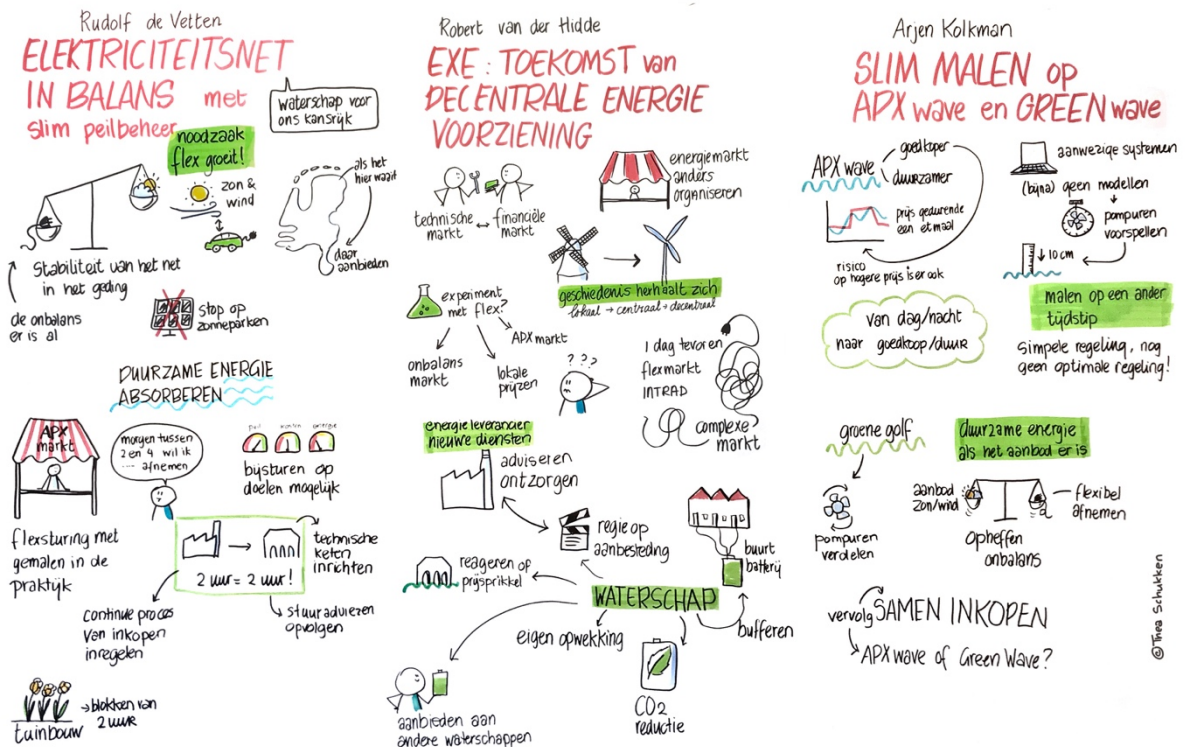 Rudolf de Vetten
ELEKTRICITEITSNET
IN BALANS met
slim peilbeheer
waterschap voor
ons kansrijk
noodzaak
flex groeit!
zon &
wind
als het
hier waait
daar
aanbieden
Stabiliteit van het net
in het geding
de onbalans
er is al
stop op
zonneparken
DUURZAME ENERGIE
ABSORBEREN
APX
markt
morgen tussen
2 en 4 wil ik
--- afnemen
peil
energie
bijsturen op
doelen mogelijk
flexsturing met
gemalen in de
praktijk
2 uur = 2 uur!
technische
keten
inrichten
continue proces
van inkopen
inregelen
stuuradviezen
opvolgen
tuinbouw
blokken van
2 uur
Robert van der Hidde
EXE: TOEKOMST van
DECENTRALE ENERGIE
VOORZIENING
technische
markt
financiële
markt
energiemarkt
anders
organiseren
geschiedenis herhaalt zich
lokaal → centraal → decentraal
experiment
met flex?
onbalans
markt
lokale
prijzen
APX markt
? ? ?
1 dag tevoren
flexmarkt
INTRAD
complexe
markt
energie leverancier
nieuwe diensten
adviseren
ontzorgen
regie op
aanbesteding
buurt
batterij
reageren op
prijsprikkel
WATERSCHAP
eigen opwekking
bufferen
CO2
reductie
aanbieden aan
andere waterschappen
Arjen Kolkman
SLIM MALEN op
APX wave en GREEN wave
APX wave
goedkoper
duurzamer
prijs gedurende
een etmaal
risico
op hogere prijs is er ook
van dag/nacht
naar goedkoop/duur
aanwezige systemen
(bijna) geen modellen
pompuren
voorspellen
10 cm
malen op een ander
tijdstip
simpele regeling, nog
geen optimale regeling!
groene golf
pompuren
verdelen
duurzame energie
als het aanbod er is
aanbod
zon/wind
flexibel
afnemen
opheffen
onbalans
vervolg SAMEN INKOPEN
APX wave of Green Wave?
©Thea Schukken